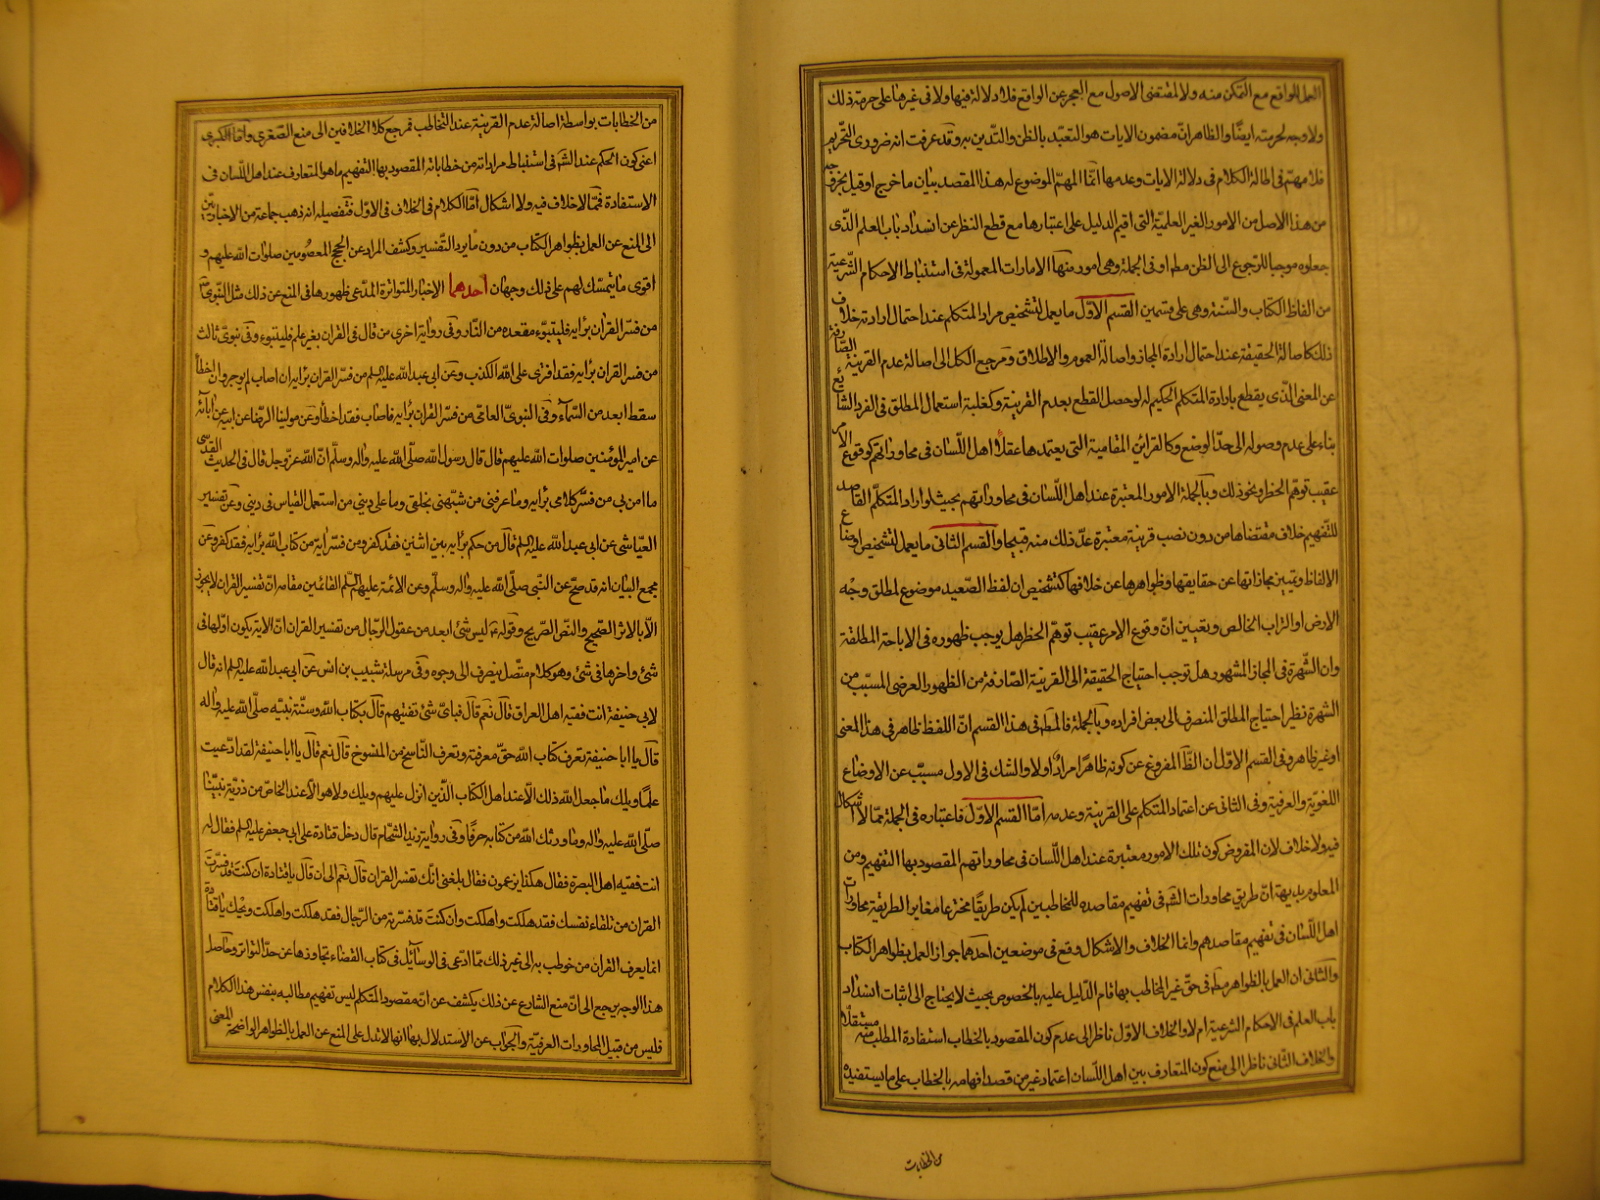 العمل للواقع مع التمكن منه ولا لمقتضى الاصول مع العجز عن الواقع فلا دلالة فيها ولا فى غيرها على حرمة ذلك
ولا وجه لحرمته ايضًا والظاهر انّ مضمون الايات هو التعبّد بالظن والتّديّن به وقد عرفت انه ضرورى التّحريم
فلا مهمّ فى اطالة الكلام فى دلالة الايات وعدمها انّما المهمّ الموضوع له هذا المقصد بيان ما خرج او قيل بخروجه
من هذا الاصل من الامور الغير العلميّة التى اقيم الدليل على اعتبارها مع قطع النظر عن انسداد باب العلم الّذى
جعلوه موجبا للرّجوع الى الظن مطلقا او فى الجملة وهى امور منها الامارات المعمولة فى استنباط الاحكام الشّرعيّة
من الفاظ الكتاب والسّنة وهى على قسمين القسم الاوّل ما يعمل لتشخيص مراد المتكلم عند احتمال ارادته خلاف
ذلك كاصالة الحقيقة عند احتمال ارادة المجاز واصالة العموم والاطلاق ومرجع الكل الى اصالة عدم القرينة الصّارفة
عن المعنى الّذى يقطع بارادة المتكلم الحكيم له لو حصل القطع بعدم القرينة وكغلبة استعمال المطلق فى الفرد الشّايع
بناء على عدم وصوله الى حدّ الوضع وكالقرائن المقامية التى يعتمدها عقلاء اهل اللّسان فى محاوراتهم كوقوع الامر
عقيب توهّم الحظر ونحو ذلك وبالجملة الامور المعتبرة عند اهل اللّسان فى محاوراتهم بحيث لو اراد المتكلّم القاصد
للتّفهيم خلاف مقتضاها من دون نصب قرينة معتبرة عدّ ذلك منه قبيحا والقسم الثانى ما يعمل لتشخيص اوضاع
الالفاظ وتمييز مجازاتها عن حقايقها وظواهرها عن خلافها كتشخيص ان لفظ الصّعيد موضوع لمطلق وجه
الارض او التراب الخالص وتعيين انّ وقوع الامر عقيب توهّم الحظر هل يوجب ظهوره فى الاباحة المطلقة
وان الشّهرة فى المجاز المشهور هل توجب احتياج الحقيقة الى القرينة الصّارفة من الظهور العرضى المسبّب من
الشهرة نظير احتياج المطلق المنصرف الى بعض افراده وبالجملة فالمط فى هذا القسم انّ اللفظ ظاهر فى هذا المعنى
او غير ظاهر وفى القسم الاوّل ان الظّ المفروغ عن كونه ظاهرًا مرادٌ اولا والشك فى الاول مسبّب عن الاوضاع
اللغويّة والعرفية وفى الثانى عن اعتماد المتكلم على القرينة وعدمه امّا القسم الاوّل فاعتباره فى الجملة ممّا لا اشكال
فيه ولا خلاف لان المفروض كون تلك الامور معتبرة عند اهل اللّسان فى محاوراتهم المقصود بها التفهيم ومن
المعلوم بديهة انّ طريق محاورات الشّ فى تفهيم مقاصده للمخاطبين لم يكن طريقًا مخترعا مغايرا لطريقة محاورات
اهل اللّسان فى تفهيم مقاصدهم وانما الخلاف والاشكال وقع فى موضعين احدهما جواز العمل بظواهر الكتاب
والثّانى ان العمل بالظواهر مط فى حقّ غير المخاطب بها قام الدّليل عليه بالخصوص بحيث لا يحتاج الى اثبات انسداد
باب العلم فى الاحكام الشرعية ام لا والخلاف الاوّل ناظر الى عدم كون المقصود بالخطاب استفادة المطلب منه مستقلّا
والخلاف الثّانى ناظر الى منع كون المتعارف بين اهل اللّسان اعتماد غير من قصد افهامه بالخطاب على ما يستفيده
من الخطابات
من الخطابات بواسطة اصالة عدم القرينة عند التّخاطب فمرجع كلا الخلافين الى منع الصّغرى وامّا الكبرى
اعنى كون الحكم عند الشّ فى استنباط مراداته من خطاباته المقصود بها التفهيم ما هو المتعارف عند اهل اللّسان فى
الاستفادة فممّا لا خلاف فيه ولا اشكال امّا الكلام فى الخلاف فى الاوّل فتفصيله انه ذهب جماعة من الاخباريّين
الى المنع عن العمل بظواهر الكتاب من دون ما يرد التّفسير وكشف المراد عن الحجج المعصومين صلوات اللّه عليهم و
اقوى ما يتمسّك لهم على ذلك وجهان احدهما الاخبار المتواترة المدّعى ظهورها فى المنع عن ذلك مثل النّبوىّ
من فسّر القران برايه فليتبوّء مقعده من النّار وفى رواية اخرى من قال فى القران بغير علم فليتبوء وفى نبوىّ ثالث
من فسر القران برايه فقد افترى على اللّه الكذب وعن ابى عبد اللّه عليه السلم من فسّر القران برايه ان اصاب لم يوجر وان اخطأ
سقط ابعد من السّماء وفى النبوىّ العامّى من فسّر القران برايه فاصاب فقد اخطأ وعن مولينا الرّضا عن ابيه عن ابائه
عن امير المؤمنين صلوات اللّه عليهم قال قال رسول اللّه صلّى اللّه عليه واله وسلّم انّ اللّه عزّ وجل قال فى الحديث القدسى
ما امن بى من فسّر كلامى برايه وما عرفنى من شبّهنى بخلقى وما على دينى من استعمل القياس فى دينى وعن تفسير
العيّاشى عن ابى عبد اللّه عليه السلم قال من حكم برايه بين اثنين فقد كفر ومن فسّر اية من كتاب اللّه برايه فقد كفر وعن
مجمع البيان انه قد صحّ عن النّبى صلّى اللّه عليه واله وسلّم وعن الائمة عليهم السّلم القائمين مقامه انّ تفسير القران لا يجوز
الّا بالاثر الصّحيح والنصّ الصّريح وقوله ليس شئ ابعد من عقول الرّجال من تفسير القران انّ الاية يكون اوّلها فى
شئ واخرها فى شئ وهو كلام متّصل ينصرف الى وجوه وفى مرسلة شبيب بن انس عن ابى عبد اللّه عليه السلم انه قال
لابى حنيفة انت فقيه اهل العراق قال نعم قال فباىّ شئ تفتيهم قال بكتاب اللّه وسنّة نبيّه صلّى اللّه عليه واله
قال يا ابا حنيفة تعرف كتاب اللّه حقّ معرفته وتعرف النّاسخ من المنسوخ قال نعم قال يا ابا حنيفة لقد ادّعيت
علمًا ويلك ما جعل اللّه ذلك الّا عند اهل الكتاب الّذين انزل عليهم ويلك ولا هو الّا عند الخاصّ من ذرّية نبيّنا
صلّى اللّه عليه واله وما ورثك اللّه من كتابه حرفًا وفى رواية زيد الشّحّام قال دخل قتادة على ابى جعفر عليه السلم فقال له
انت فقيه اهل البصرة فقال هكذا يزعمون فقال بلغنى انّك تفسّر القران قال نعم الى ان قال يا قتادة ان كنت قد فسّرت
القران من تلقاء نفسك فقد هلكت واهلكت وان كنت قد فسّرته من الرّجال فقد هلكت واهلكت ويحك يا قتادة
انما يعرف القران من خوطب به الى غير ذلك ممّا ادّعى فى الوسائل فى كتاب القضاء تجاوزها عن حدّ التواتر وحاصل
هذا الوجه يرجع الى انّ منع الشارع عن ذلك يكشف عن انّ مقصود المتكلم ليس تفهيم مطالبه بنفس هذا الكلام
فليس من قبيل المحاورات العرفيّة والجواب عن الاستدلال بها انها لا تدل على المنع عن العمل بالظواهر الواضحة المعنى